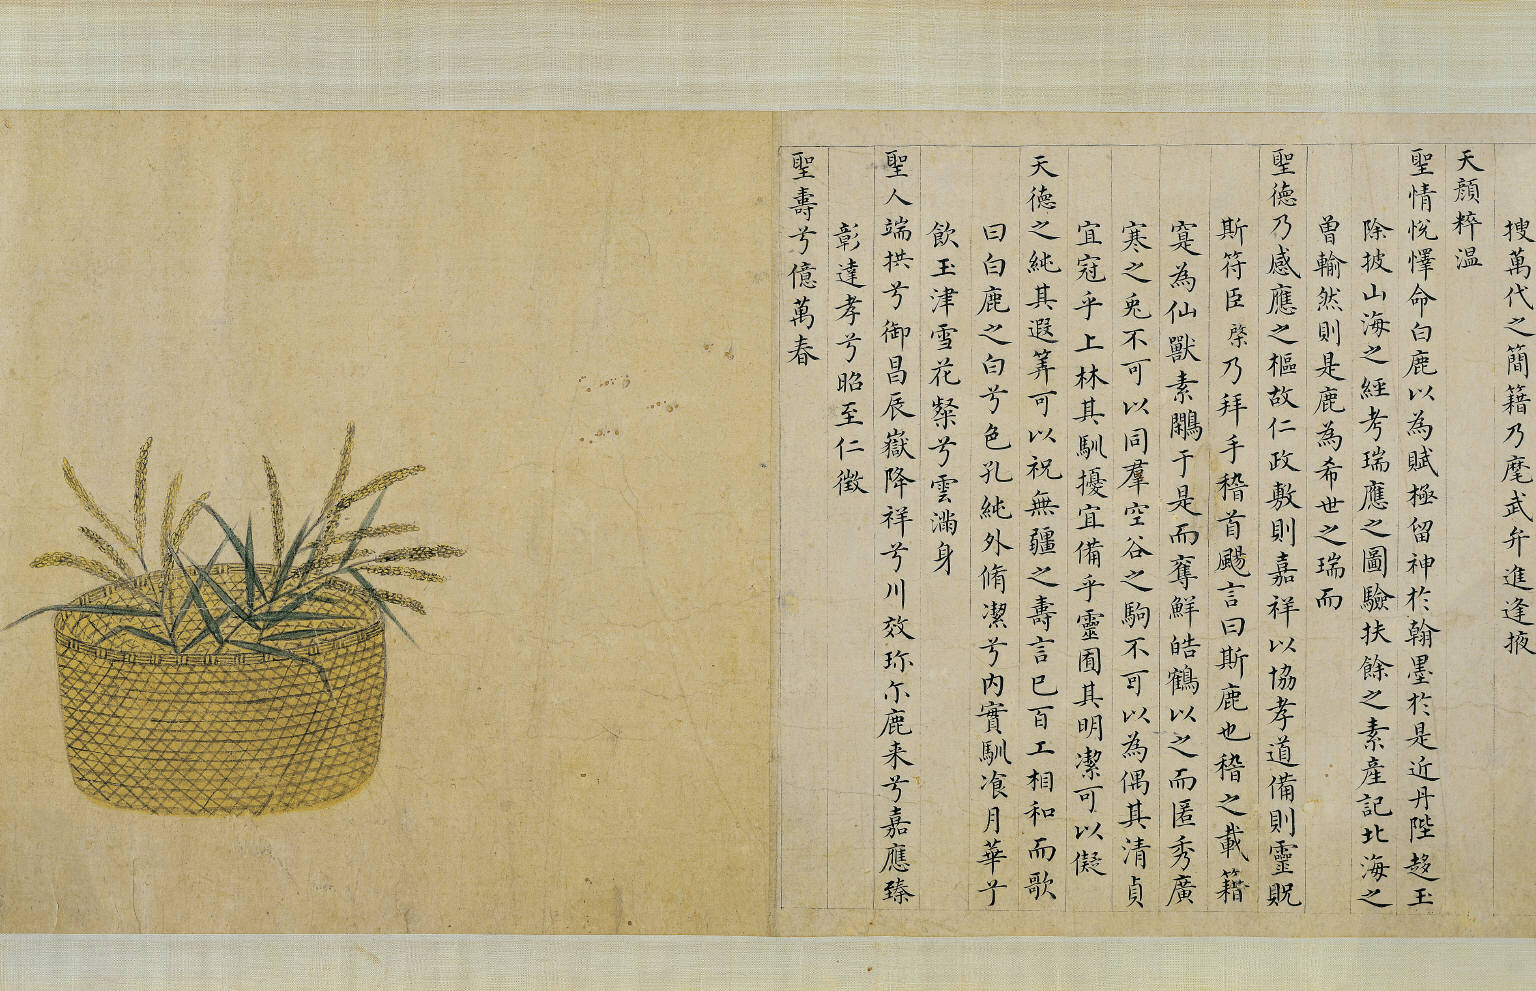 搜萬代之簡籍乃麾武弁進逢掖
天顔粹温
聖情悅懌命白鹿以為賦極留神於翰墨於是近丹陛趍玉
除披山海之經考瑞應之圖驗扶餘之素產記北海之
曽輸然則是鹿為希世之瑞而
聖德乃感應之樞故仁政敷則嘉祥以協孝道備則靈貺
斯符臣棨乃拜手稽首颺言曰斯鹿也稽之載籍
寔為仙獸素鷴于是而奪鮮皓鶴以之而匿秀廣
寒之兎不可以同羣空谷之駒不可以為偶其清貞
宜冠乎上林其馴擾宜備乎靈囿其明潔可以儗
天德之純其遐筭可以祝無疆之壽言已百工相和而歌
曰白鹿之白兮色孔純外脩潔兮内實馴飡月華兮
飲玉津雪花粲兮雲滿身
聖人端拱兮御昌辰嶽降祥兮川效珎尓鹿来兮嘉應臻
彰達孝兮昭至仁徵
聖壽兮億萬春